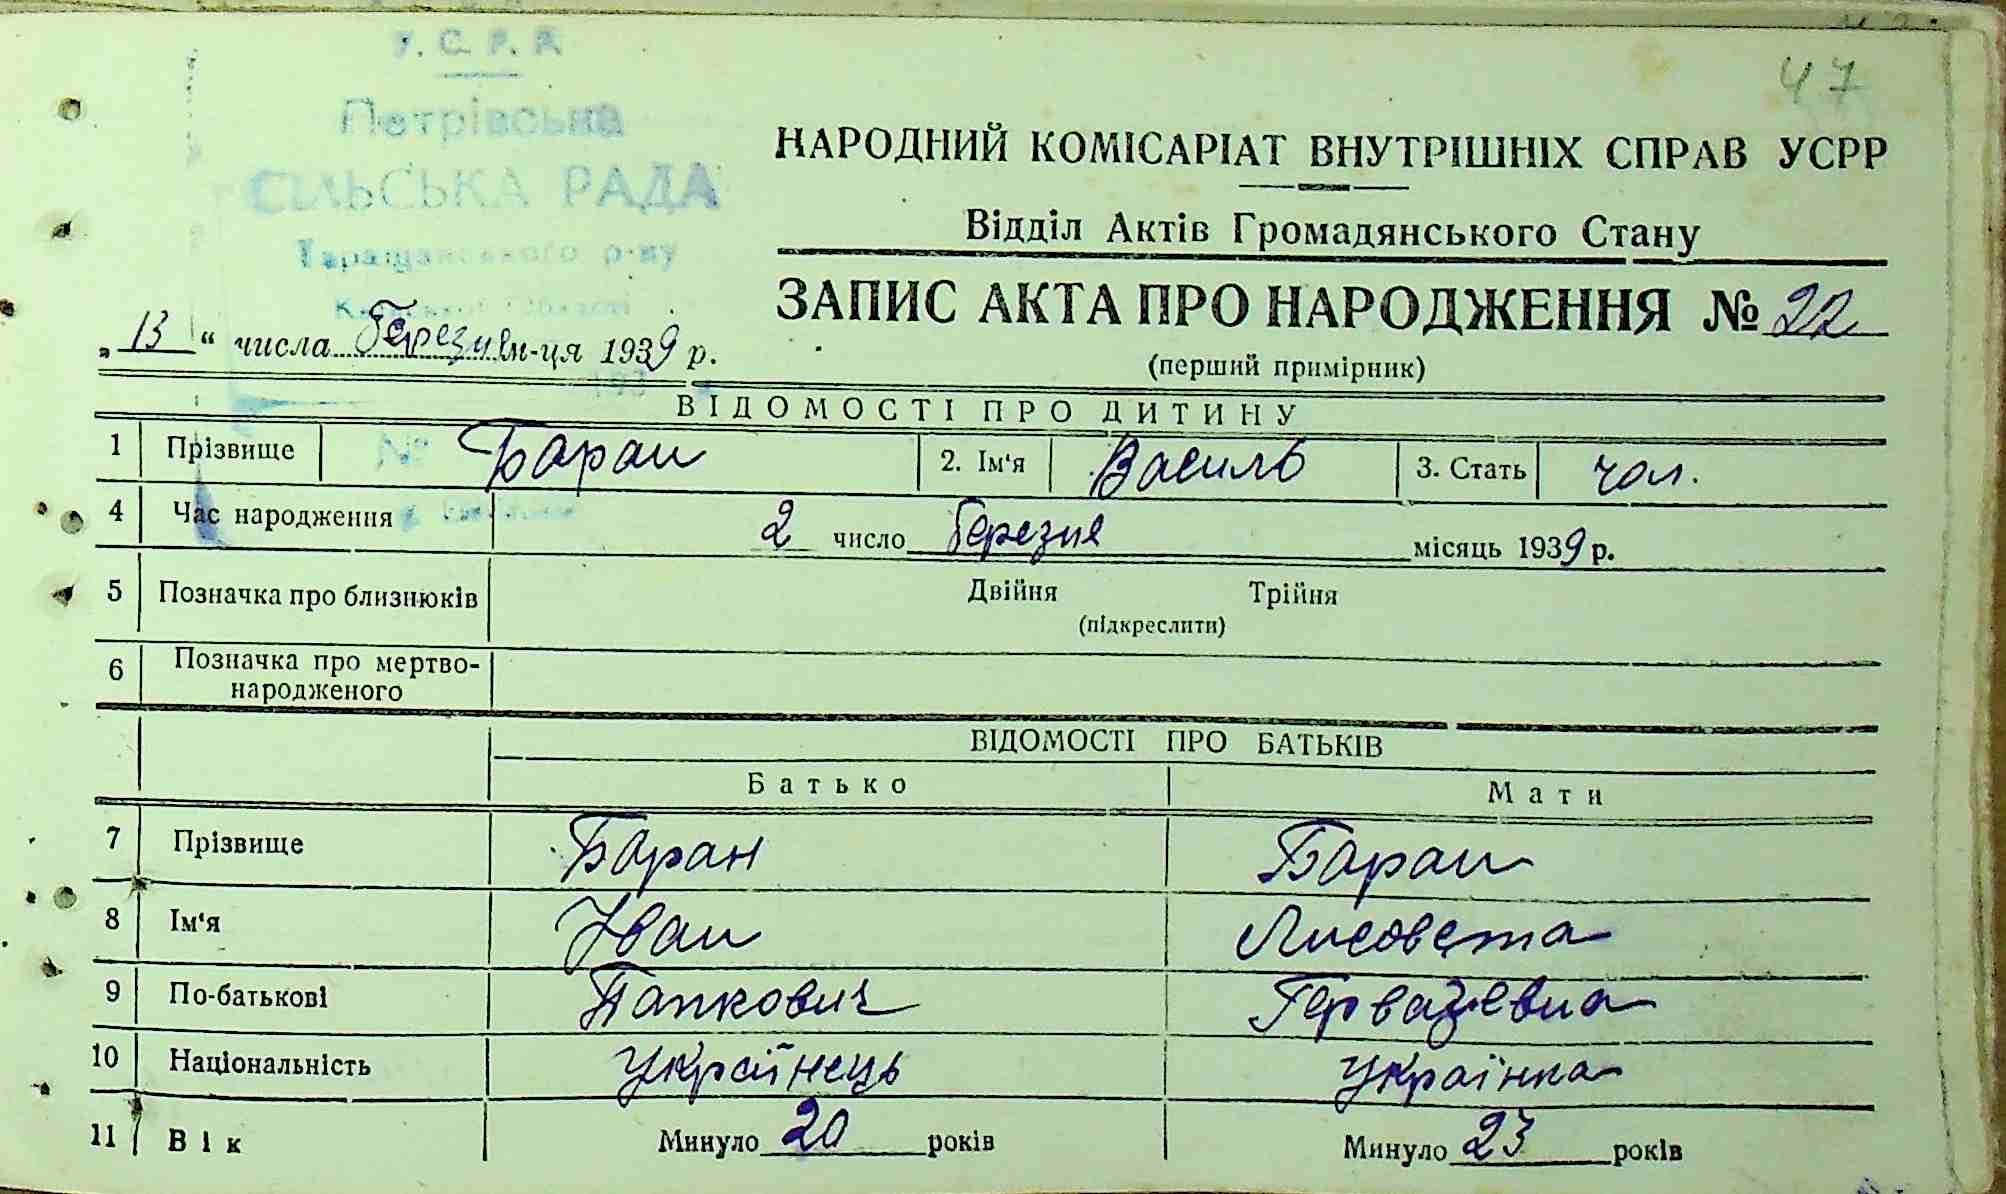 47
У. С. Р. Р.
Петрівська
СІЛЬСЬКА РАДА
Таращанського р-ну
Київської Області
НАРОДНИЙ КОМІСАРІАТ ВНУТРІШНІХ СПРАВ УСРР
Відділ Актів Громадянського Стану
ЗАПИС АКТА ПРО НАРОДЖЕННЯ № 22
(перший примірник)
„13“ числа Березня м-ця 1939 р.
193
ВІДОМОСТІ ПРО ДИТИНУ
№
1 Прізвище Баран 2. Ім‘я Василь 3. Стать чол.
4 Час народження 2 число березня місяць 1939 р.
5 Позначка про близнюків Двійня Трійня
(підкреслити)
6 Позначка про мертво-
народженого
ВІДОМОСТІ ПРО БАТЬКІВ
Батько Мати
7 Прізвище Баран Баран
8 Ім‘я Іван Лисовета
9 По-батькові Папкович Гервазевна
10 Національність Українець Українка
11 Вік Минуло 20 років Минуло 23 років